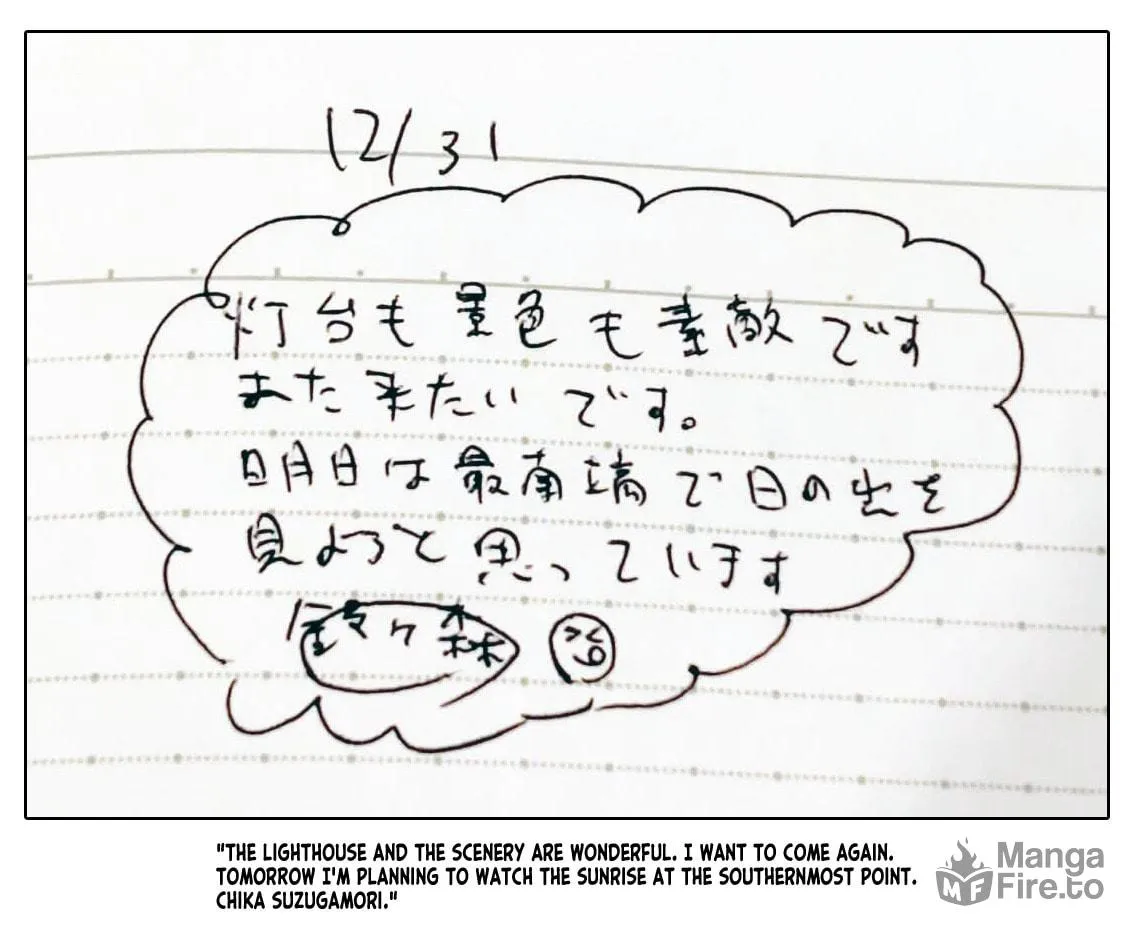 12/31
灯台も景色も素敵です
また来たいです。
明日は最南端で日の出を
見ようと思っています
鈴々森
"THE LIGHTHOUSE AND THE SCENERY ARE WONDERFUL. I WANT TO COME AGAIN.
TOMORROW I'M PLANNING TO WATCH THE SUNRISE AT THE SOUTHERNMOST POINT.
CHIKA SUZUGAMORI."
Manga
MF Fire.to